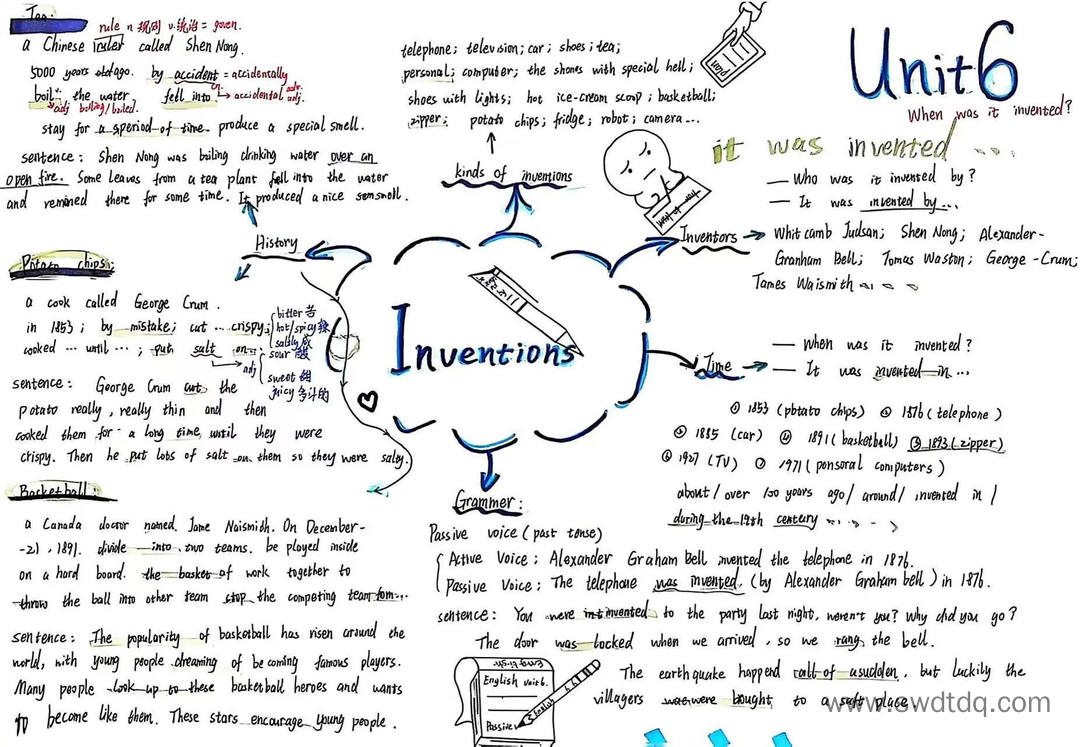 Unit 6
When was it invented?
it was invented ....
Tea:
rule n 规则 v. 统治 = govern.
a Chinese ruler called Shen Nong.
5000 years ago. by accident = accidentally
boil: the water fell into → accidental adj.
adj boiling/boiled.
stay for a period of time. produce a special smell.
sentence: Shen Nong was boiling drinking water over an
open fire. Some leaves from a tea plant fell into the water
and remined there for some time. It produced a nice smell.
History
Potato chips:
a cook called George Crum.
in 1853; by mistake; cut ... crispy;
cooked ... until ...; put salt on
adj
bitter 苦
hot/spicy 辣
salty 咸
sour 酸
sweet 甜
juicy 多汁的
sentence: George Crum cut the
potato really, really thin and then
cooked them for a long time, until they were
crispy. Then he put lots of salt on them so they were salty.
Basketball:
a Canada doctor named Jame Naismith. On December-
-21, 1891. divide into two teams. be played inside
on a hard board. the basket of work together to
throw the ball into other team stop the competing team
sentence: The popularity of basketball has risen around the
world, with young people dreaming of becoming famous players.
Many people look up to these basketball heroes and wants
to become like them. These stars encourage young people.
telephone; television; car; shoes; tea;
personal; computer; the shones with special hell;
shoes with lights; hot ice-cream scoop; basketball;
zipper; potato chips; fridge; robot; camera...
kinds of inventions
plan
Inventions
Inventors
— Who was it invented by?
— It was invented by...
Whitcamb Judsan; Shen Nong; Alexander-
Granham Bell; Tomas Waston; George-Crum;
James Waismith ....
Time
— When was it invented?
— It was invented in ...
① 1853 (potato chips) ② 1876 (telephone)
③ 1885 (car) ④ 1891 (basketball) ⑤ 1893 (zipper)
⑥ 1927 (TV) ⑦ 1971 (ponsoral computers)
about/ over 100 years ago/ around/ invented in /
during the 19th century
Grammer:
Passive voice (past tense)
Active Voice: Alexander Graham Bell invented the telephone in 1876.
Passive Voice: The telephone was invented (by Alexander Graham bell) in 1876.
sentence: You were invented to the party last night, weren't you? Why did you go?
The door was locked when we arrived, so we rang the bell.
The earthquake happend all of a sudden, but luckily the
villagers were bought to a saft place.
English unit 6.
Passive
English
www.swdtdq.com